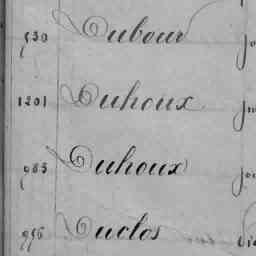 530 Dubour
1201 Duhoux
983 Duhoux
956 Duclos